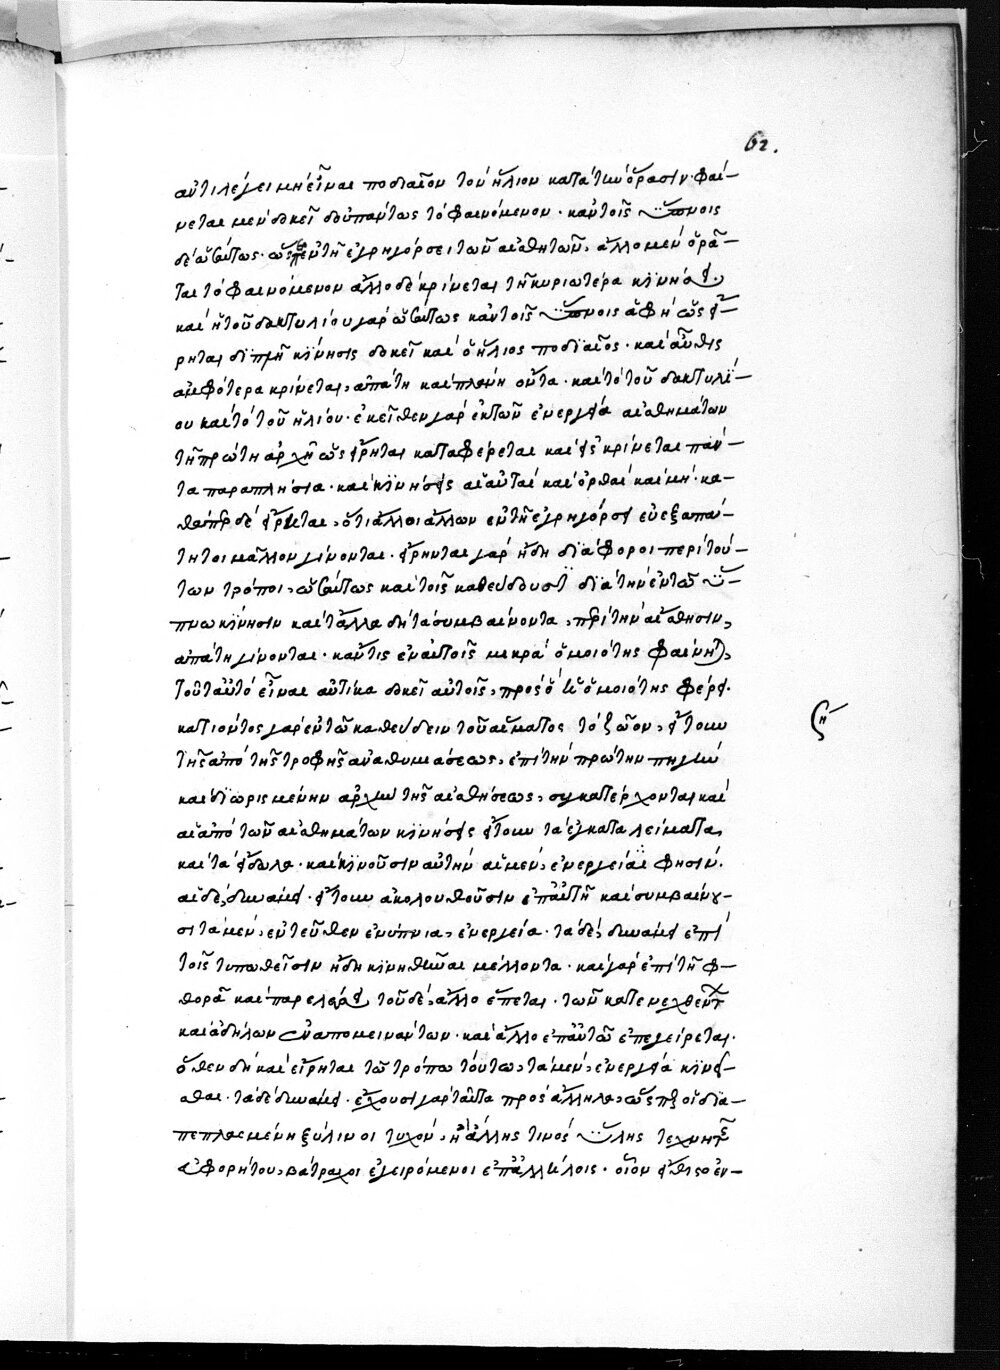 62.
ἀντιλέγει μὴ εἶναι ποδιαῖον τὸν ἥλιον κατὰ τὴν ὅρασιν· φαί–
νεται μὲν δοκεῖ δ' οὐ πάντως τὸ φαινόμενον· κἂν τοῖς ὕπνοις
δὲ ὡσαύτως· ὥσπερ ἐν τῇ ἐγρηγόρσει τῶν αἰσθητῶν, ἄλλο μὲν ὁρᾶ–
ται τὸ φαινόμενον ἄλλο δὲ κρίνεται τῇ κυριωτέρα κϊνήσει·
καὶ ἡ τοῦ δακτυλίου γὰρ ὡσαύτως κἂν τοῖς ὕπνοις ἁφὴ ὡς εἴ–
ρηται διττὴ κίνησις δοκεῖ καὶ ὁ ἥλιος ποδϊαῖος· καὶ αὖθις
ἀμφότερα κρίνεται, ἀπάτη καὶ πλάνη ὄντα· καὶ τὸ τοῦ δακτυλί–
ου καὶ τὸ τοῦ ἡλίου· ἐκεῖθεν γὰρ ἐκ τῶν ἐνεργείᾳ αἰσθημάτων
τῇ πρώτῃ ἀρχῇ ὡς εἴρηται καταφέρεται καὶ εἰσκρίνεται πάν–
τα παραπλήσια· καὶ κϊνήσεις αἱ αὐταὶ καὶ ὀρθαὶ καὶ μή· κα–
θάπερ δὲ εἴρηται, ὅτι ἄλλοι ἄλλων ἐν τῇ ἐγρηγόρσει εὐεξαπά–
τητοι μᾶλλον γίνονται· εἴρηνται γὰρ ἤδη διάφοροι περὶ τού–
των τρόποι, ὡσαύτως καὶ τοῖς καθεύδουσι διὰ τὴν ἐν τῷ ὕ–
πνω κίνησιν καὶ τἄλλα δὴ τὰ συμβαίνοντα, περὶ τὴν αἴσθησιν,
ἀπάτη γίνονται· κἄν τις ἐν αὐτοῖς μικρὰ ὁμοιότης φαίνηται,
τοῦτ' αὐτὸ εἶναι αὐτίκα δοκεῖ αὐτοῖς, πρὸς ὃ ἡ ὁμοιότης φέρει·
κατιόντος γὰρ ἐν τῷ καθεύδειν τοῦ αἵματος τὸ ζῶον, ἤτοι
τῆς ἀπὸ τῆς τροφῆς ἀναθυμιάσεως, ἐπὶ τὴν πρώτην πηγὴν
καὶ διωρισμένην ἀρχὴν τῆς αἰσθήσεως, συγκατέρχονται καὶ
αἱ ἀπὸ τῶν αἰσθημάτων κϊνήσεις ἤτοι τὰ ἐγκαταλείματα,
καὶ τὰ εἴδωλα· καὶ κϊνοῦσιν αὐτὴν αἱ μὲν, ἐνεργείαι φησὶν·
αἱ δὲ, δυνάμει· ἤτοι ἀκολουθοῦσιν ἐπ' αὐτῇ καὶ συμβαίνου–
σι τὰ μὲν, ἐντεῦθεν ἐνύπνια, ἐνεργεία· τὰ δὲ, δυνάμει ἐπὶ
τοῖς τυπωθεῖσιν ἤδη κϊνηθῆναι μέλλοντα· καὶ γὰρ ἐπὶ τῇ φ–
θορᾷ καὶ παρελεύσει τοῦδε, ἄλλο ἕπεται· τῶν κατενεχθέντων
καὶ ἀδήλων ἐναπομεινάντων· καὶ ἄλλο ἐπ' αὐτῷ ἐπεγείρεται·
ὅθεν δὴ καὶ εἴρηται τῷ τρόπω τούτω, τὰ μὲν, ἐνεργείᾳ κϊνεῖ–
σθαι· τὰ δὲ δυνάμει· ἔχουσι γὰρ ταῦτα πρὸς ἄλληλα, ὥσπερ οἱ δια–
πεπλασμένη ξύλινοι τυχὸν, ἢ ἄλλης τινὸς ὕλης τεχνητῆς
ἀφορήτου, βάτραχοι ἐγειρόμενοι ἐπ' ἀλλήλοις· οἷον εἴ τις ἐν–
ση